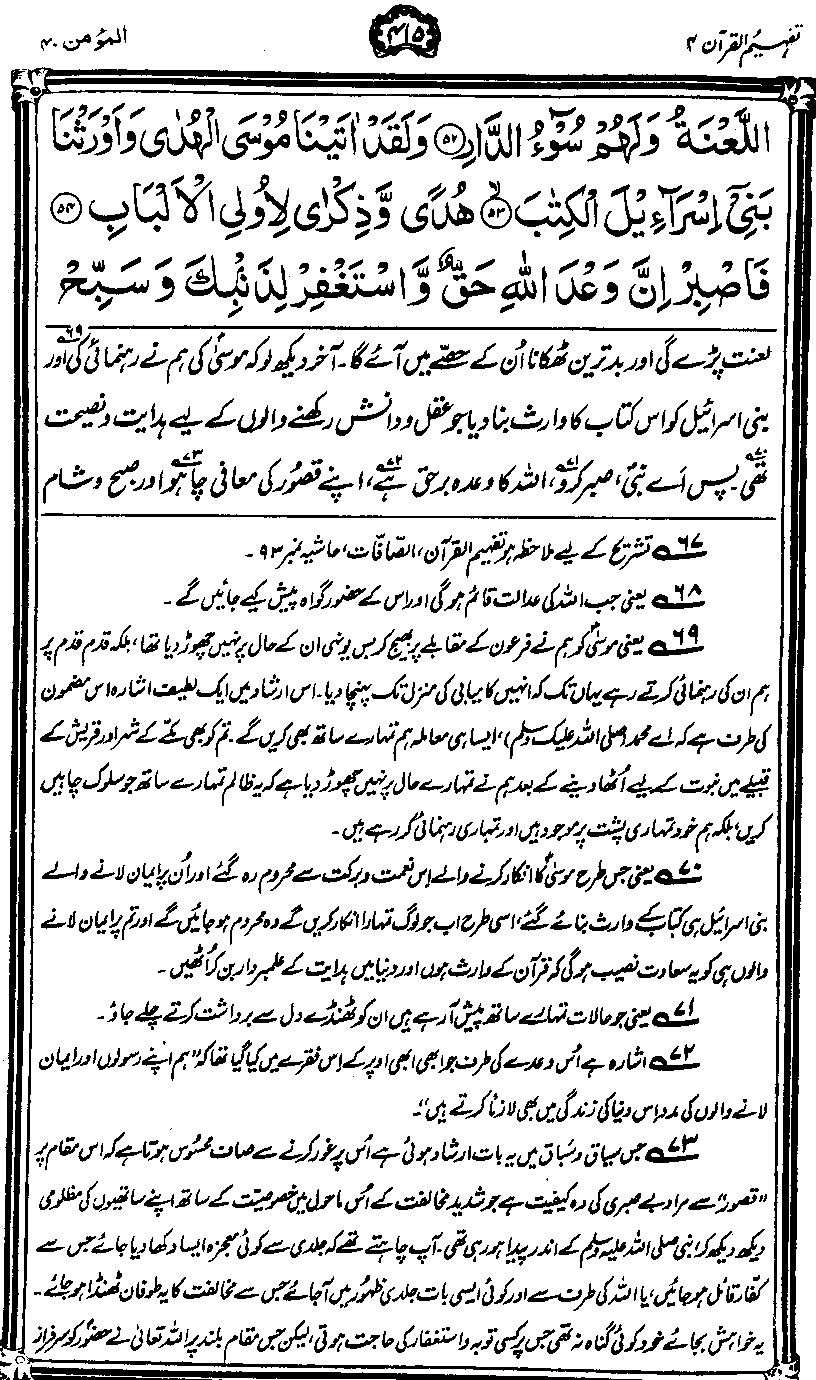 تفہیم القرآن ۴
۴۱۵
المؤمن ۴۰
اللَّعۡنَةُ وَلَهُمۡ سُوۡٓءُ الدَّارِ ﴿۵۲﴾ وَلَقَدۡ اٰتَيۡنَا مُوۡسَى الۡهُدٰى وَاَوۡرَثۡنَا
بَنِىۡۤ اِسۡرَآءِيۡلَ الۡكِتٰبَ ﴿۵۳﴾ هُدًى وَّذِكۡرٰى لِاُولِى الۡاَلۡبَابِ ﴿۵۴﴾
فَاصۡبِرۡ اِنَّ وَعۡدَ اللّٰهِ حَقٌّ وَّاسۡتَغۡفِرۡ لِذَنۡۢبِكَ وَسَبِّحۡ
لعنت پڑے گی اور بد ترین ٹھکانا اُن کے حصّے میں آئے گا۔ آخر دیکھ لو کہ موسیٰؑ کی ہم نے رہنمائی کی۶۹ اور
بنی اسرائیل کو اس کتاب کا وارث بنا دیا جو عقل و دانش رکھنے والوں کے لیے ہدایت و نصیحت
تھی۷۰۔ پس اَے نبیؐ، صبر کرو۷۱، اللہ کا وعدہ برحق ہے۷۲، اپنے قصُور کی معافی چاہو۷۳ اور صبح و شام
۶۷ تشریح کے لیے ملاحظہ ہو تفہیم القرآن، الصّافّات، حاشیہ نمبر ۹۳۔
۶۸ یعنی جب اللہ کی عدالت قائم ہو گی اور اس کے حضور گواہ پیش کیے جائیں گے۔
۶۹ یعنی موسیٰؑ کو ہم نے فرعون کے مقابلے پر بھیج کر بس یونہی ان کے حال پر نہیں چھوڑ دیا تھا، بلکہ قدم قدم پر
ہم ان کی رہنمائی کرتے رہے یہاں تک کہ انہیں کامیابی کی منزل تک پہنچا دیا۔ اس ارشاد میں ایک لطیف اشارہ اس مضمون
کی طرف ہے کہ اے محمد (صلی اللہ علیک وسلم)، ایسا ہی معاملہ ہم تمہارے ساتھ بھی کریں گے۔ تم کو بھی مکے کے شہر اور قریش کے
قبیلے میں نبوت کے لیے اُٹھا دینے کے بعد ہم نے تمہارے حال پر نہیں چھوڑ دیا ہے کہ یہ ظالم تمہارے ساتھ جو سلوک چاہیں
کریں، بلکہ ہم خود تمہاری پشت پر موجود ہیں اور تمہاری رہنمائی کر رہے ہیں۔
۷۰ یعنی جس طرح موسیٰؑ کا انکار کرنے والے اس نعمت و برکت سے محروم رہ گئے اور اُن پر ایمان لانے والے
بنی اسرائیل ہی کتاب کے وارث بنائے گئے، اسی طرح اب جو لوگ تمہارا انکار کریں گے وہ محروم ہو جائیں گے اور تم پر ایمان لانے
والوں ہی کو یہ سعادت نصیب ہو گی کہ قرآن کے وارث ہوں اور دنیا میں ہدایت کے علمبردار بن کر اُٹھیں۔
۷۱ یعنی جو حالات تمہارے ساتھ پیش آ رہے ہیں ان کو ٹھنڈے دل سے برداشت کرتے چلے جاؤ۔
۷۲ اشارہ ہے اُس وعدے کی طرف جو ابھی ابھی اوپر کے اس فقرے میں کیا گیا تھا کہ "ہم اپنے رسولوں اور ایمان
لانے والوں کی مدد اس دنیا کی زندگی میں بھی لازماً کرتے ہیں"۔
۷۳ جس سیاق و سباق میں یہ بات ارشاد ہوئی ہے اُس پر غور کرنے سے صاف محسُوس ہوتا ہے کہ اس مقام پر
"قصور" سے مراد بے صبری کی وہ کیفیت ہے جو شدید مخالفت کے اُس ماحول میں خصوصیّت کے ساتھ اپنے ساتھیوں کی مظلومی
دیکھ دیکھ کر، نبی صلی اللہ علیہ وسلم کے اندر پیدا ہو رہی تھی۔ آپ چاہتے تھے کہ جلدی سے کوئی معجزہ ایسا دکھا دیا جائے جس سے
کفار قائل ہو جائیں، یا اللہ کی طرف سے اور کوئی ایسی بات جلدی ظہُور میں آ جائے جس سے مخالفت کا یہ طوفان ٹھنڈا ہو جائے۔
یہ خواہش بجائے خود کوئی گناہ نہ تھی جس پر کسی توبہ و استغفار کی حاجت ہوتی، لیکن جس مقام بلند پر اللہ تعالیٰ نے حضُور کو سرفراز